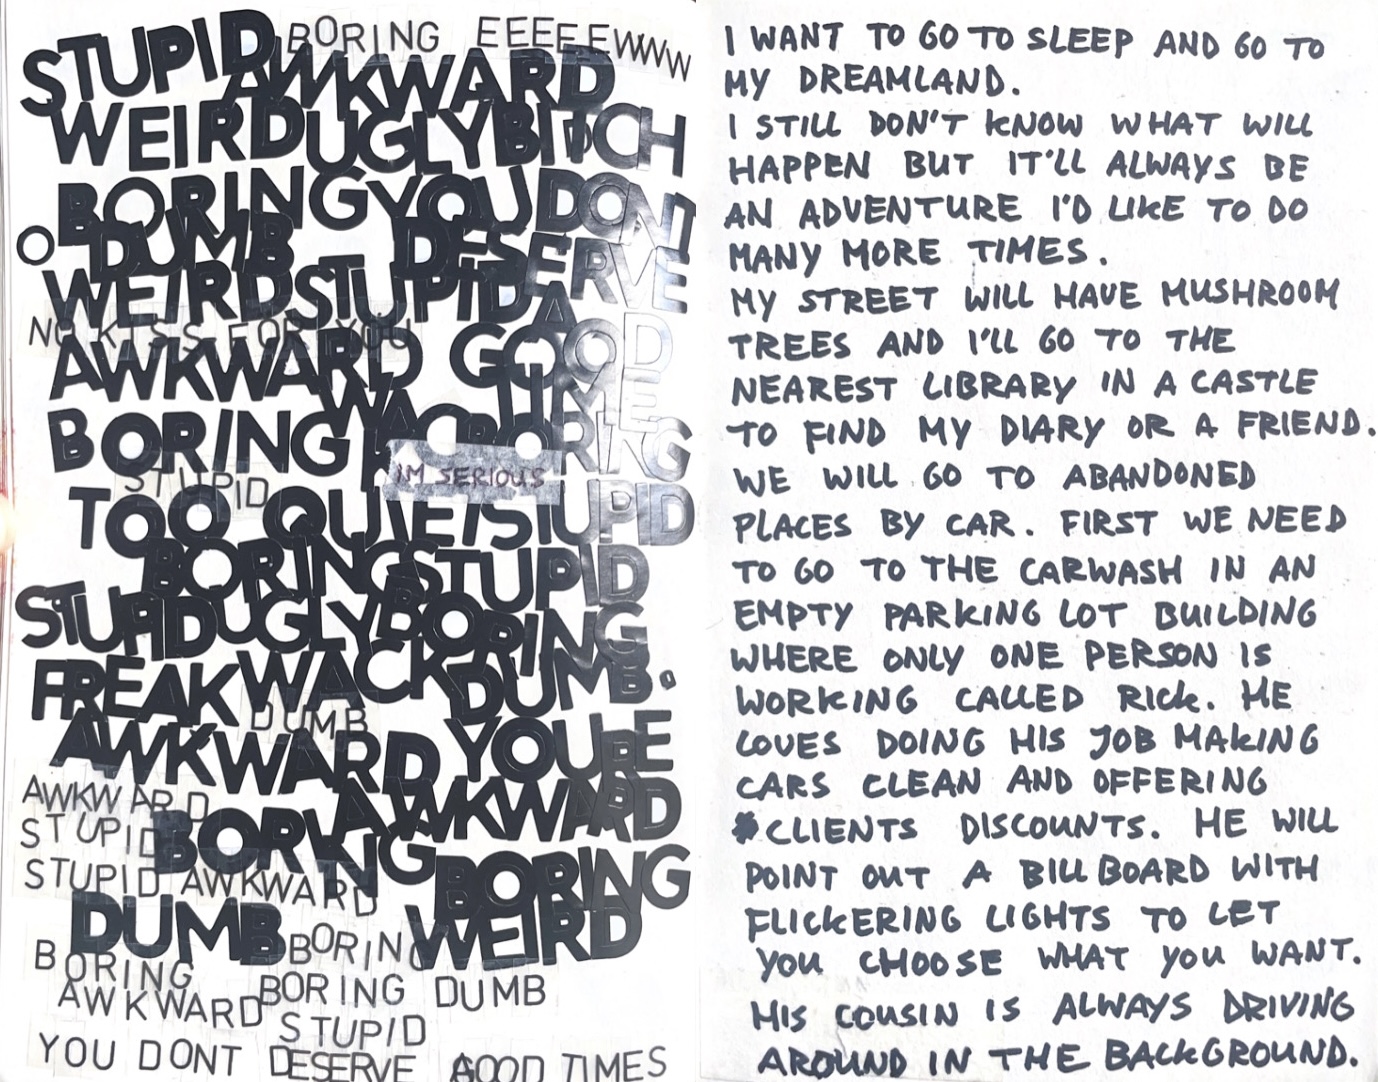 STUPID BORING EEEEEWWW
AWKWARD
WEIRD UGLY BITCH
BORING YOU DON'T
O DUMB DESERVE
WEIRD STUPID A
NO KISS FOR YOU
AWKWARD GOOD
TIME
BORING WACK BORING
IM SERIOUS
STUPID
TOO QUIET STUPID
BORING STUPID
STUPID UGLY BORING
FREAK WACK DUMB.
DUMB
AWKWARD YOURE
AWKWARD
AWKWARD
STUPID BORING
STUPID AWKWARD BORING
DUMB BORING WEIRD
BORING
AWKWARD BORING DUMB
STUPID
YOU DONT DESERVE GOOD TIMES
I WANT TO GO TO SLEEP AND GO TO
MY DREAMLAND.
I STILL DON'T KNOW WHAT WILL
HAPPEN BUT IT'LL ALWAYS BE
AN ADVENTURE I'D LIKE TO DO
MANY MORE TIMES.
MY STREET WILL HAVE MUSHROOM
TREES AND I'LL GO TO THE
NEAREST LIBRARY IN A CASTLE
TO FIND MY DIARY OR A FRIEND.
WE WILL GO TO ABANDONED
PLACES BY CAR. FIRST WE NEED
TO GO TO THE CARWASH IN AN
EMPTY PARKING LOT BUILDING
WHERE ONLY ONE PERSON IS
WORKING CALLED RICK. HE
LOVES DOING HIS JOB MAKING
CARS CLEAN AND OFFERING
CLIENTS DISCOUNTS. HE WILL
POINT OUT A BILLBOARD WITH
FLICKERING LIGHTS TO LET
YOU CHOOSE WHAT YOU WANT.
HIS COUSIN IS ALWAYS DRIVING
AROUND IN THE BACKGROUND.